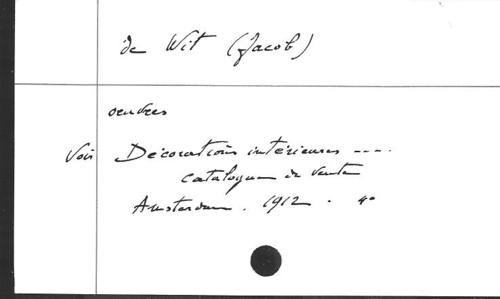 de Wit (Jacob)
oeuvres
Voir Décorations intérieures ----.
catalogue de vente
Amsterdam. 1912. 4°